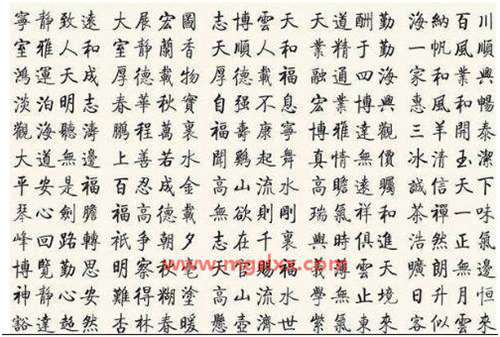 寧靜致遠 大展宏圖 志博雲天 天道酬勤 海納百川
室雅人和 室靜蘭香 大順人和 業精于勤 一帆風順
鴻運天成 厚德載物 厚德載福 融通四海 家和業興
淡泊明志 春華秋實 自强不息 宏業博興 惠風和暢
觀海聽濤 鵬程萬裏 福壽康寧 博雅達觀 三羊開泰
大道無邊 上善若水 聞鷄起舞 真情無價 冰清玉潔
平安是福 百忍成金 高山流水 高瞻遠矚 誠信天下
琴心劍膽 福高德載 無欲則剛 瑞氣祥和 茶禪一味
峰回路轉 祇爭朝夕 志在千裏 與時俱進 浩然正氣
博覽勤思 明察秋毫 天官賜福 薄雲天 無邊
神靜心安 難得糊塗 高山流水 學無止境 日升月恒
豁達超然 杏林春暖 懸壺濟世 紫氣東來 客似雲來